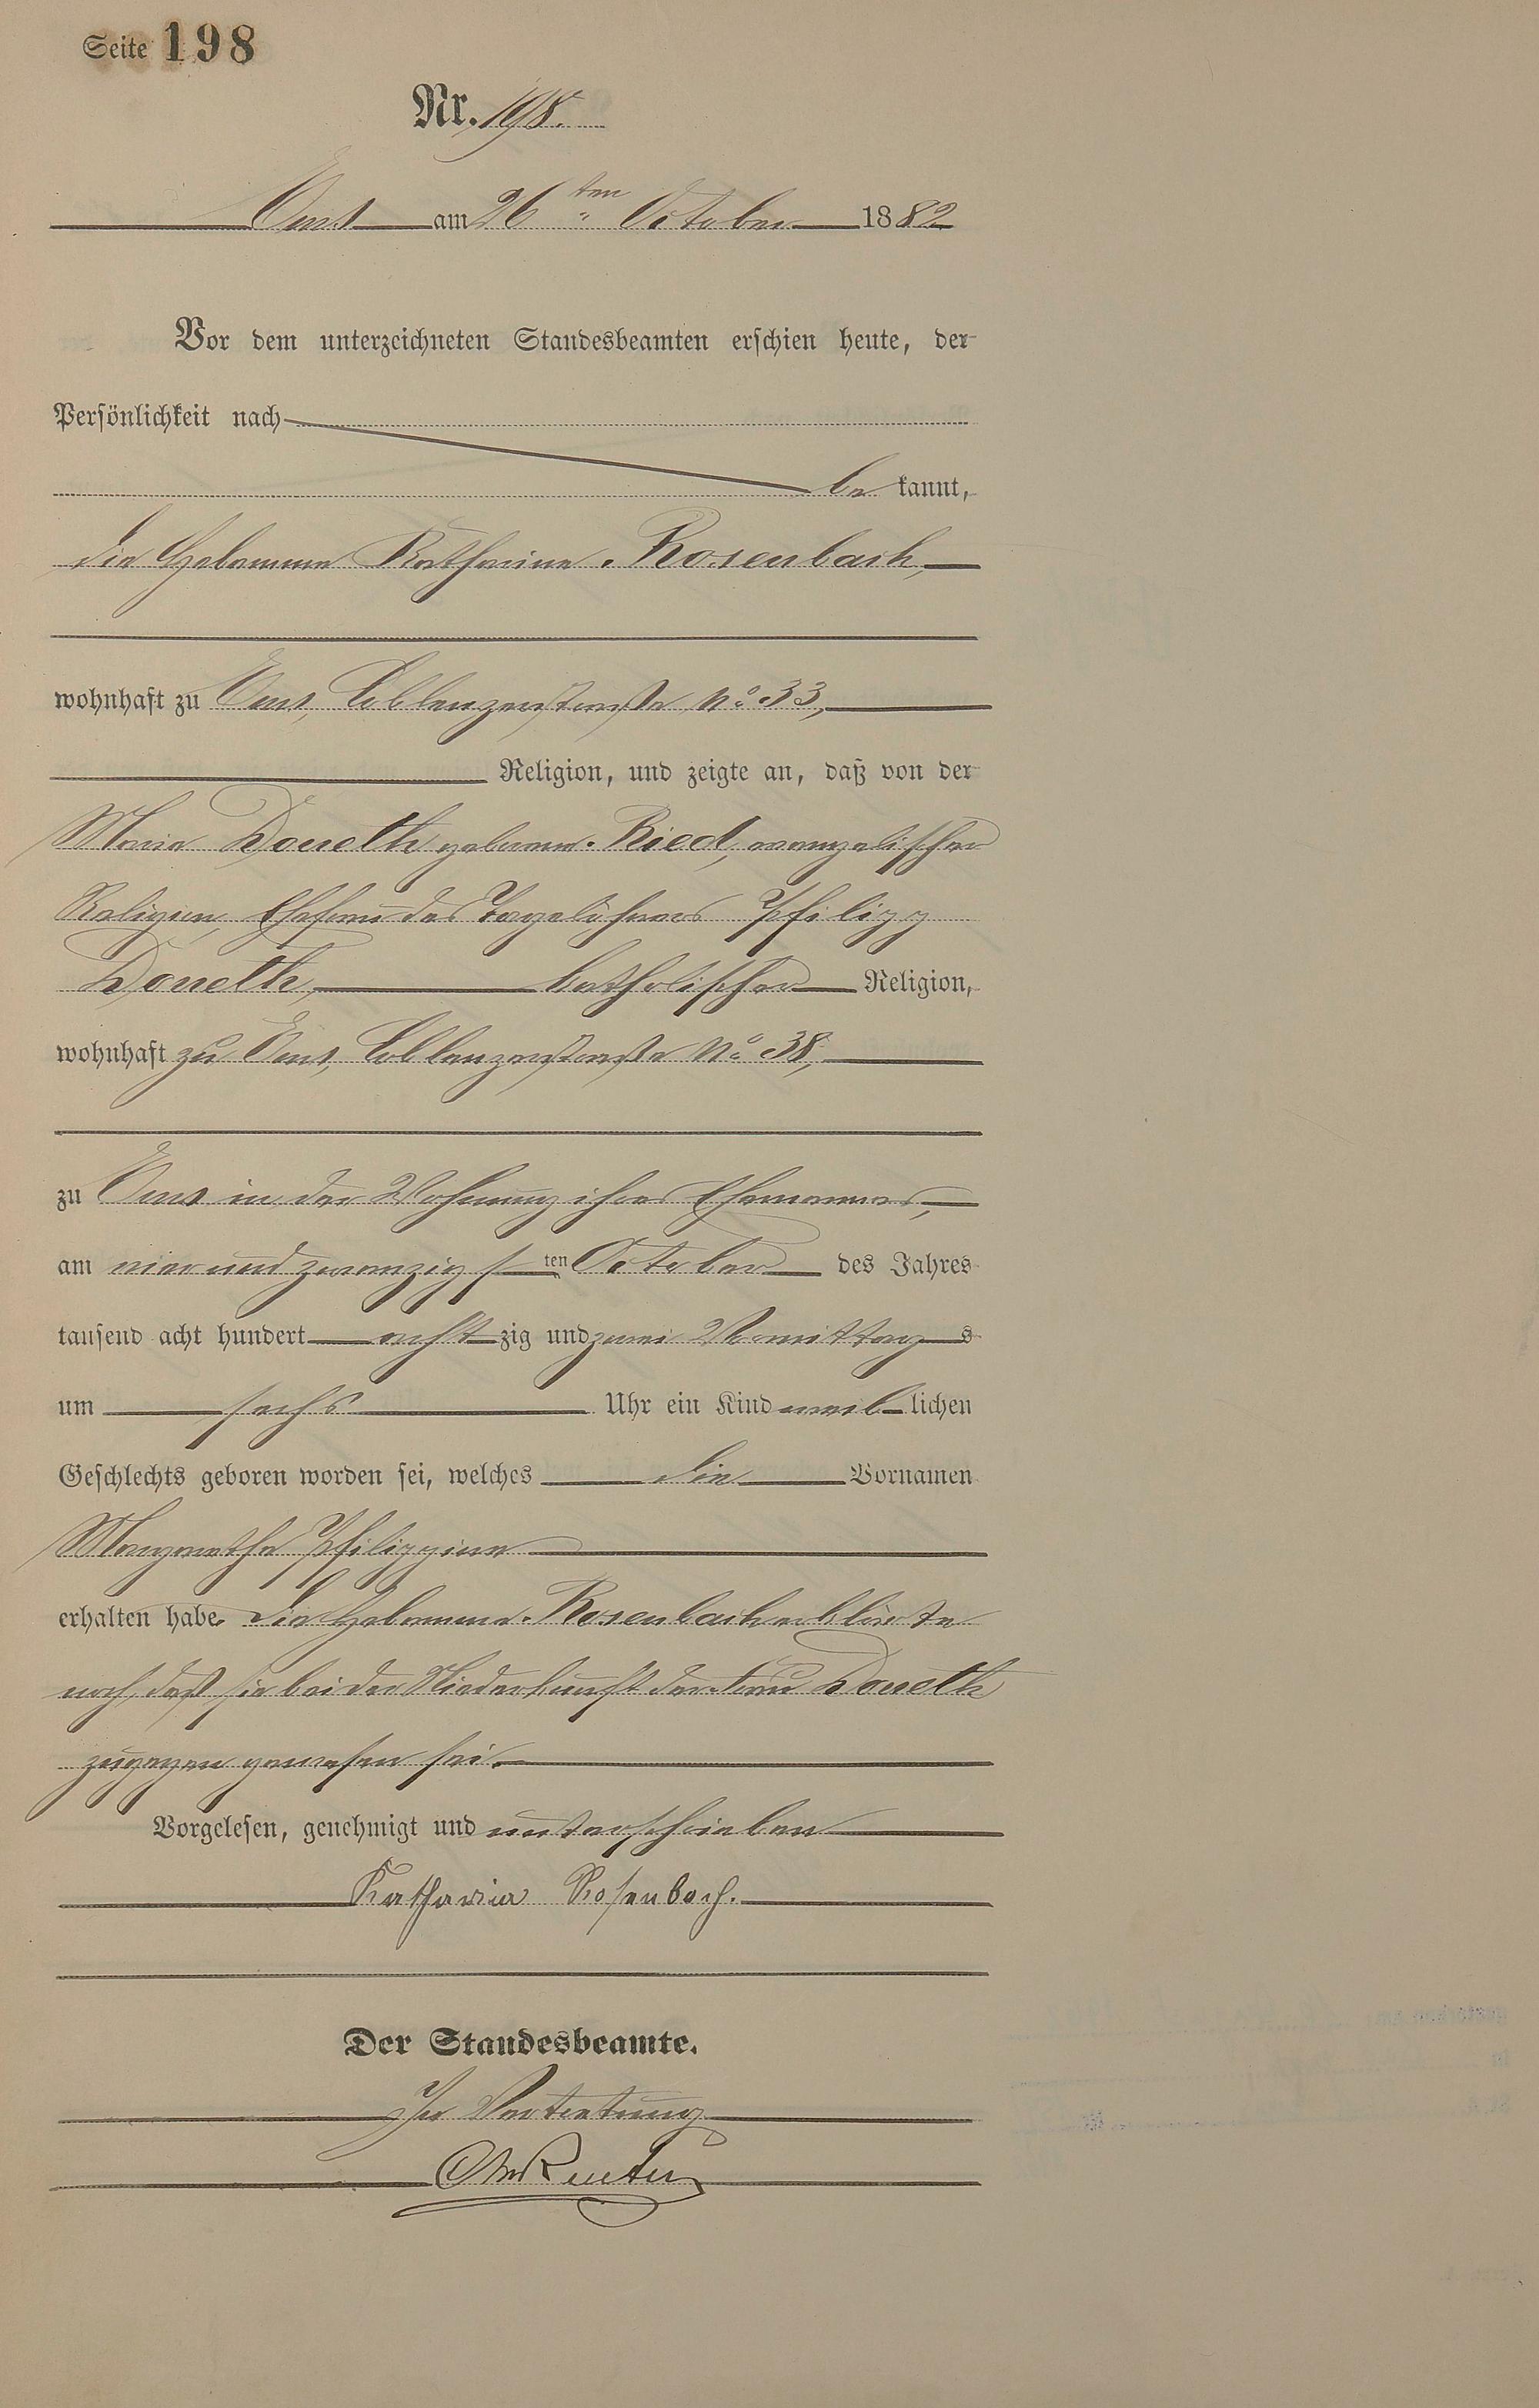 Seite 198
Nr. 198.
Ems am 26ten October 1882
Vor dem unterzeichneten Standesbeamten erschien heute, der
Persönlichkeit nach
be kannt,
die Hebamme Katharina Rosenbach,
wohnhaft zu Ems, Coblenzerstraße No 33,
Religion, und zeigte an, daß von der
Maria Doneth geborene Ried, evangelischer
Religion, Ehefrau des Tagelöhners Philipp
Doneth, katholischer Religion,
wohnhaft zu Ems, Coblenzerstraße No 38,
zu Ems in der Wohnung ihres Ehemannes,
am vier und zwanzigsten October des Jahres
tausend acht hundert acht zig und zwei Vormittags
um sechs Uhr ein Kind weiblichen
Geschlechts geboren worden sei, welches die Vornamen
Margaretha Philippine
erhalten habe. Die Hebamme Rosenbach erklärte
noch, daß sie bei der Niederkunft der Frau Doneth
zugegen gewesen sei.
Vorgelesen, genehmigt und unterschrieben
Katharina Rosenbach.
Der Standesbeamte.
In Vertretung